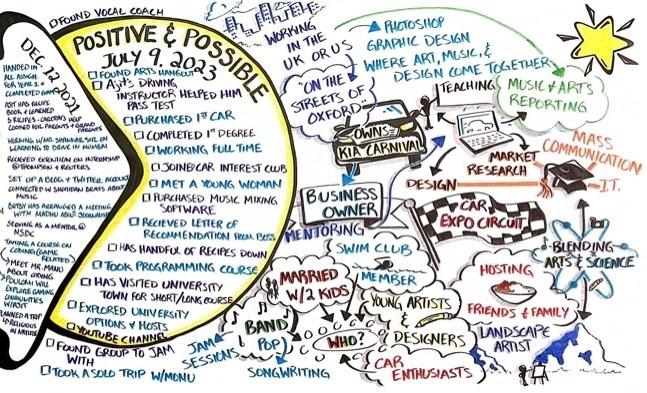 FOUND VOCAL COACH
POSITIVE & POSSIBLE
JULY 9, 2023
FOUND ARTS HANGOUT
DRIVING
INSTRUCTOR HELPED HIM
PASS TEST
PURCHASED 1ST CAR
COMPLETED 1ST DEGREE
WORKING FULL TIME
JOINED CAR INTEREST CLUB
MET A YOUNG WOMAN
PURCHASED MUSIC MIXING
SOFTWARE
RECIEVED LETTER OF
RECOMMENDATION FROM BOSS
HAS HANDFUL OF RECIPES DOWN
TOOK PROGRAMMING COURSE
HAS VISITED UNIVERSITY
TOWN FOR SHORT/LONG COURSE
EXPLORED UNIVERSITY
OPTIONS & HOSTS
YOUTUBE CHANNEL
FOUND GROUP TO JAM
WITH
TOOK A SOLO TRIP W/MONU
DEC. 12, 2021
HANDED IN
ALL ASSIGN.
FOR YEAR 2 &
COMPLETED
BOOK & LEARNED
5 RECIPES
COOKED FOR PARENTS & GRAND
PARENTS
LEARNING TO DRIVE IN MUMBAI
RECIEVED EXTENTION ON INTERNSHIP
@THOMPSON & REUTERS
SET UP A BLOG & TWITTER ACCOUNT
CONNECTED W/ ABOUT
MUSIC
HAS ARRANGED A MEETING
WITH MADHU ABOUT
SERVING AS A MENTOR @
NSDC
TAKING A COURSE ON
CODING (GAME
RELATED)
MEET MR. MANO
ABOUT CODING
POULOMI WILL
EXPLORE GAMING
COMMUNITIES
PLANNED A TRIP
WORKING
IN THE
UK OR US
"ON THE
STREETS OF
OXFORD"
PHOTOSHOP
GRAPHIC DESIGN
WHERE ART, MUSIC, &
DESIGN COME TOGETHER
TEACHING
MUSIC & ARTS
REPORTING
OWNS
KIA CARNIVAL
MARKET
RESEARCH
MASS
COMMUNICATION
DESIGN
I.T.
BUSINESS
OWNER
MENTORING
CAR
EXPO CIRCUIT
BLENDING
ARTS & SCIENCE
SWIM CLUB
MEMBER
MARRIED
W/2 KIDS
HOSTING
FRIENDS & FAMILY
YOUNG ARTISTS
&
DESIGNERS
BAND
POP
WHO?
JAM
SESSIONS
SONGWRITING
CAR
ENTHUSIASTS
LANDSCAPE
ARTIST